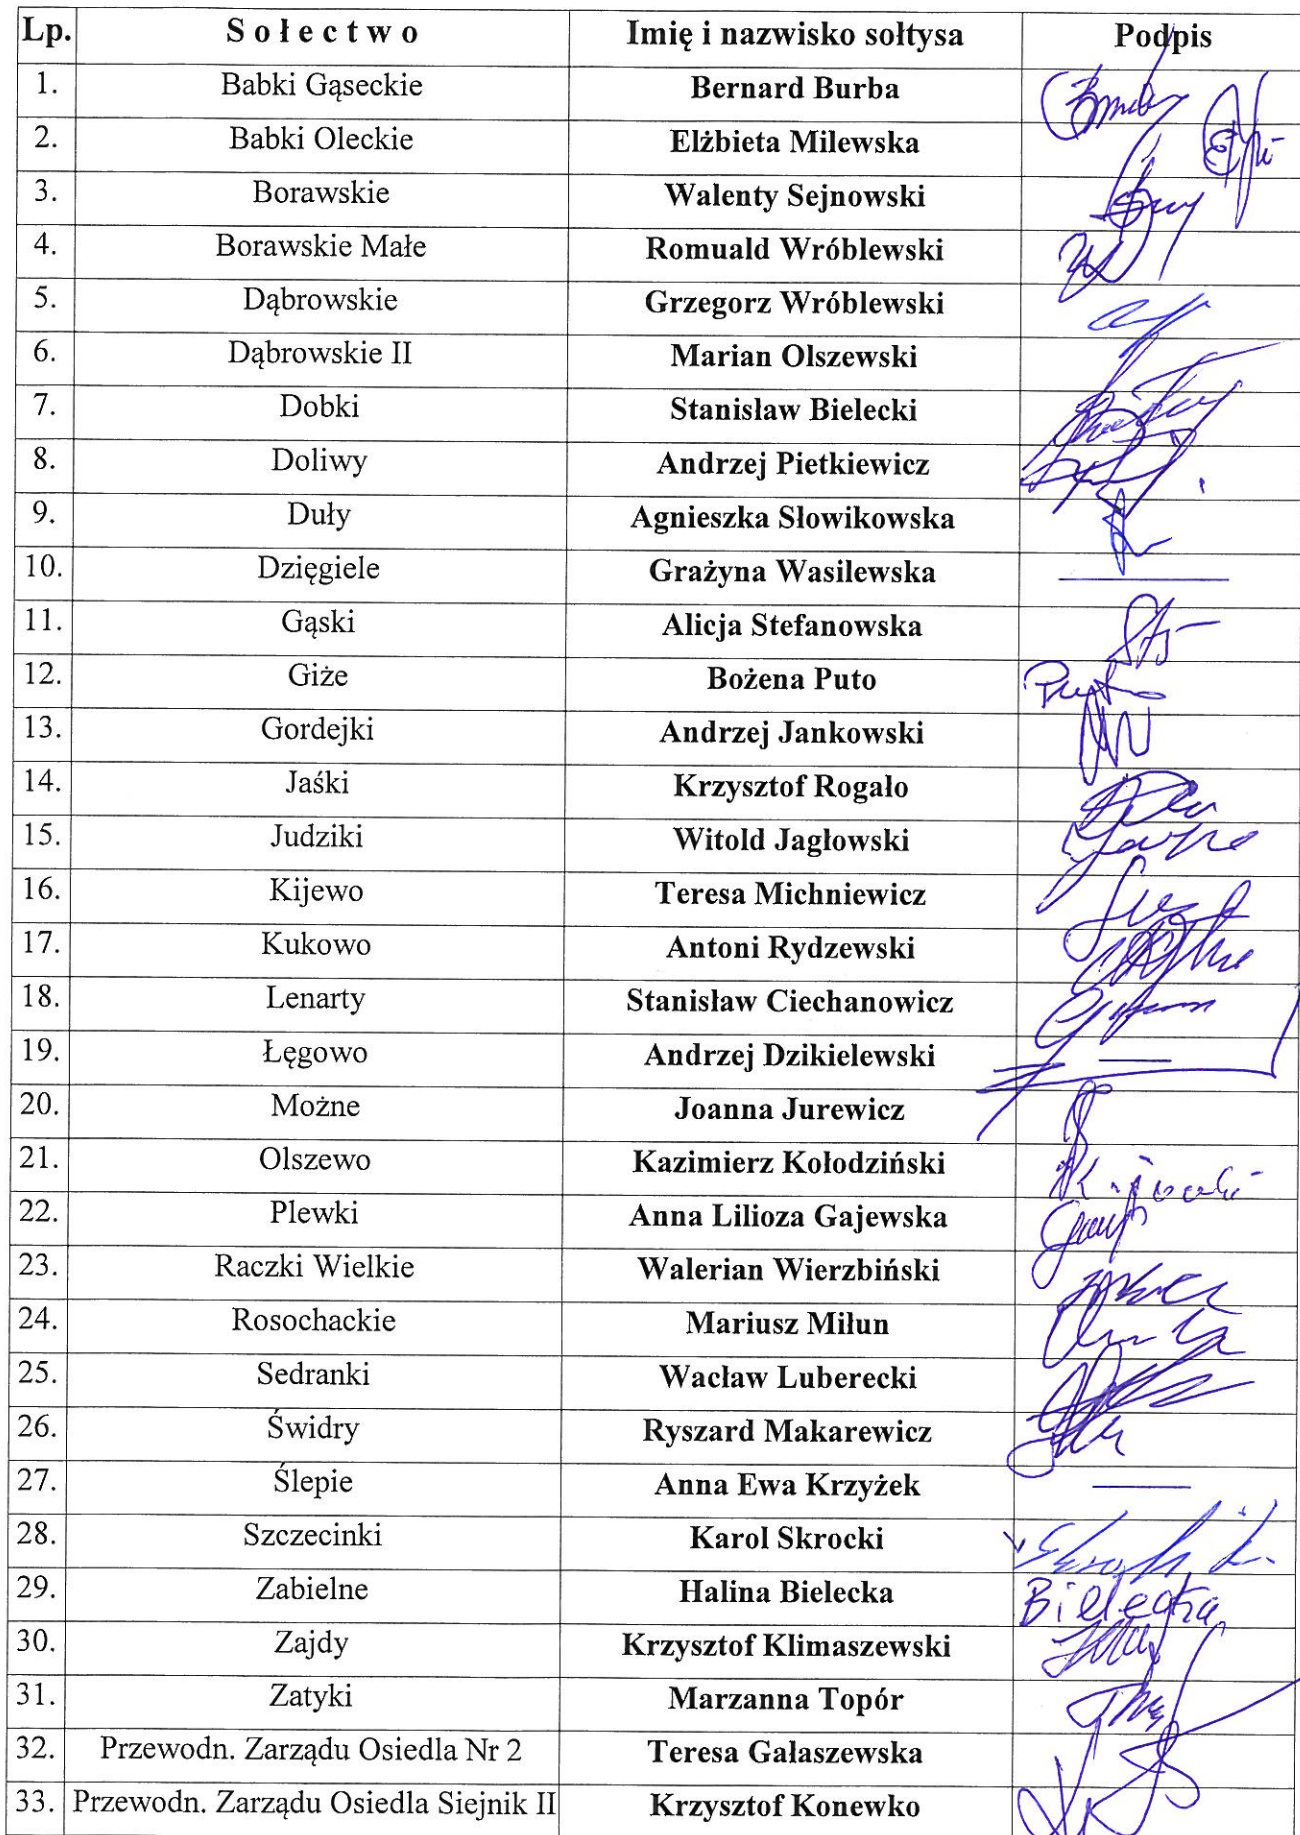 Lp. Sołectwo Imię i nazwisko sołtysa Podpis
1. Babki Gąseckie Bernard Burba
2. Babki Oleckie Elżbieta Milewska
3. Borawskie Walenty Sejnowski
4. Borawskie Małe Romuald Wróblewski
5. Dąbrowskie Grzegorz Wróblewski
6. Dąbrowskie II Marian Olszewski
7. Dobki Stanisław Bielecki
8. Doliwy Andrzej Pietkiewicz
9. Duły Agnieszka Słowikowska
10. Dzięgiele Grażyna Wasilewska
11. Gąski Alicja Stefanowska
12. Giże Bożena Puto
13. Gordejki Andrzej Jankowski
14. Jaśki Krzysztof Rogało
15. Judziki Witold Jagłowski
16. Kijewo Teresa Michniewicz
17. Kukowo Antoni Rydzewski
18. Lenarty Stanisław Ciechanowicz
19. Łęgowo Andrzej Dzikielewski
20. Możne Joanna Jurewicz
21. Olszewo Kazimierz Kołodziński
22. Plewki Anna Lilioza Gajewska
23. Raczki Wielkie Walerian Wierzbiński
24. Rosochackie Mariusz Miłun
25. Sedranki Wacław Luberecki
26. Świdry Ryszard Makarewicz
27. Ślepie Anna Ewa Krzyżek
28. Szczecinki Karol Skrocki
29. Zabielne Halina Bielecka Bielecka
30. Zajdy Krzysztof Klimaszewski
31. Zatyki Marzanna Topór
32. Przewodn. Zarządu Osiedla Nr 2 Teresa Gałaszewska
33. Przewodn. Zarządu Osiedla Siejnik II Krzysztof Konewko